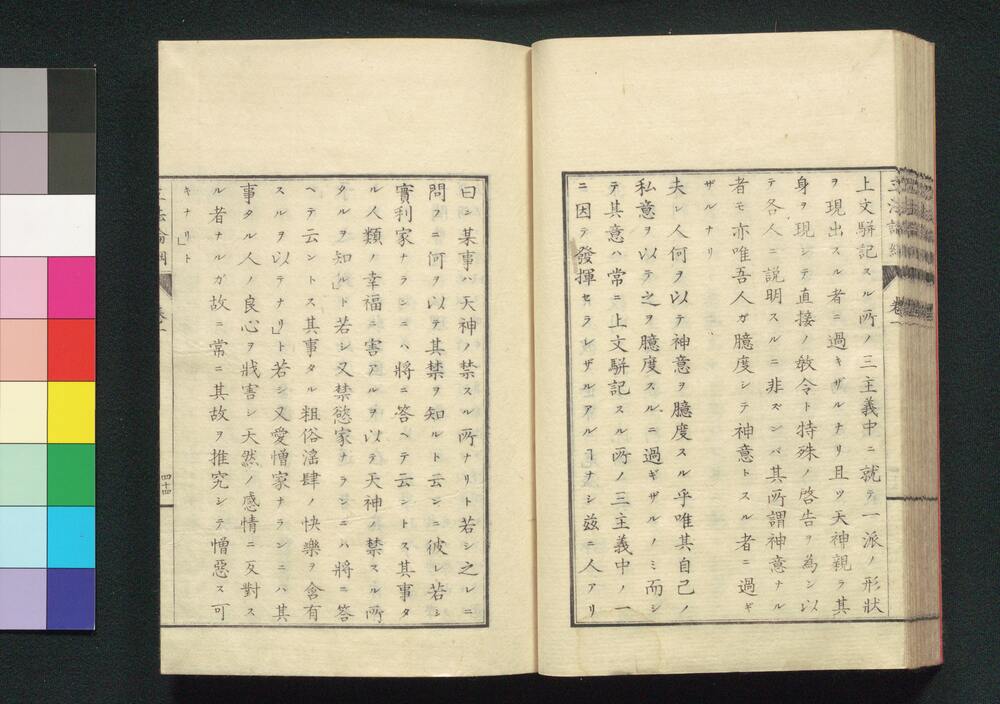 上文駢記スル所ノ三主義中ニ就テ一派ノ形狀
ヲ現出スル者ニ過キザルナリ且ツ天神親ラ其
身ヲ現シテ直接ノ敎令ト特殊ノ啓告ヲ為シ以
テ各人ニ說明スルニ非ズンバ其所謂神意ナル
者モ亦唯吾人ガ臆度シテ神意トスル者ニ過ギ
ザルナリ
夫レ人何ヲ以テ神意ヲ臆度スル乎唯其自己ノ
私意ヲ以テ之ヲ臆度スルニ過ギザルノミ而シ
テ其意ハ常ニ上文駢記スル所ノ三主義中ノ一
ニ因テ發揮セラレザルアルヿナシ茲ニ人アリ
曰ン某事ハ天神ノ禁スル所ナリト若シ之レニ
問フニ何ヲ以テ其禁ヲ知ルト云ンニ彼レ若シ
實利家ナランニハ將ニ答ヘテ云ントス其事タ
ル人類ノ幸福ニ害アルヲ以テ天神ノ禁スル所
タルヲ知ル」ト若シ又禁慾家ナランニハ將ニ答
ヘテ云ントス其事タル粗俗滛肆ノ快樂ヲ含有
スルヲ以テナリ」ト若シ又愛憎家ナランニハ其
事タル人ノ良心ヲ戕害シ天然ノ感情ニ反對ス
ル者ナルガ故ニ常ニ其故ヲ推究シテ憎惡ス可
キナリ」ト
四十四